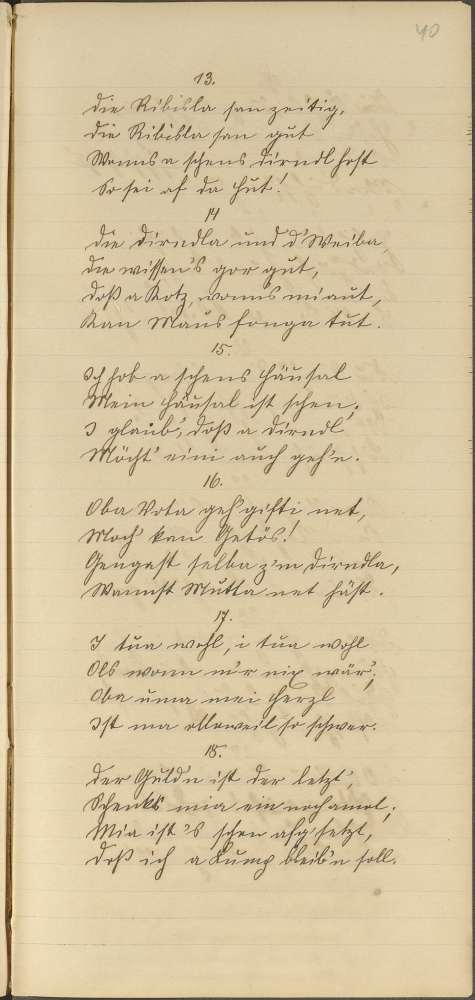 40
13.
Die Ribisla san zeitig,
Die Ribisla san gut
Wonns a schens Dirndl host
So sei af da Hut!
14
Die Dirndla und d'Weiba,
Die wissen's gor gut,
Doß a Kotz, wonns miaut,
Kan Maus fonga tut.
15.
Ich hob a schens Häusal
Mein Häusal ist schen;
I glaub', doß a Dirndl
Möcht' eini auch geh'n.
16.
Oba Vota geh' gifti net,
Moch' kan Getös!
Gengast selba z'm Dirndla,
Wannst Mutta net häst.
17.
I tua wohl, i tua wohl
Ols wonn ma'r nix wär';
Oba uma mei Herzl
Ist ma olleweil so schwer.
18.
Der Guld'n ist der letzt',
Schenkt's mia ein noch amol;
Mia ist's schon afg'setzt,
Doß ich a Lump bleib'n soll.